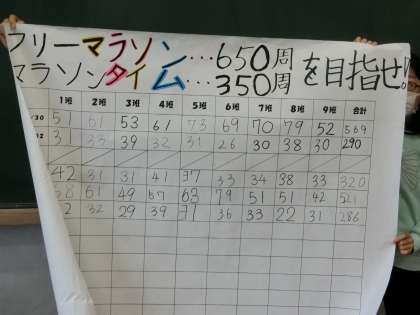 フリーマラソン…650周
マラソンタイム…350周
を目指せ!
1班 2班 3班 4班 5班 6班 7班 8班 9班 合計
/30 51 61 53 61 73 69 70 79 52 569
31 33 39 32 31 26 30 38 30 290
42 31 31 41 37 33 34 38 33 320
61 49 57 63 79 51 51 42 521
2 32 29 39 37 36 33 22 31 286